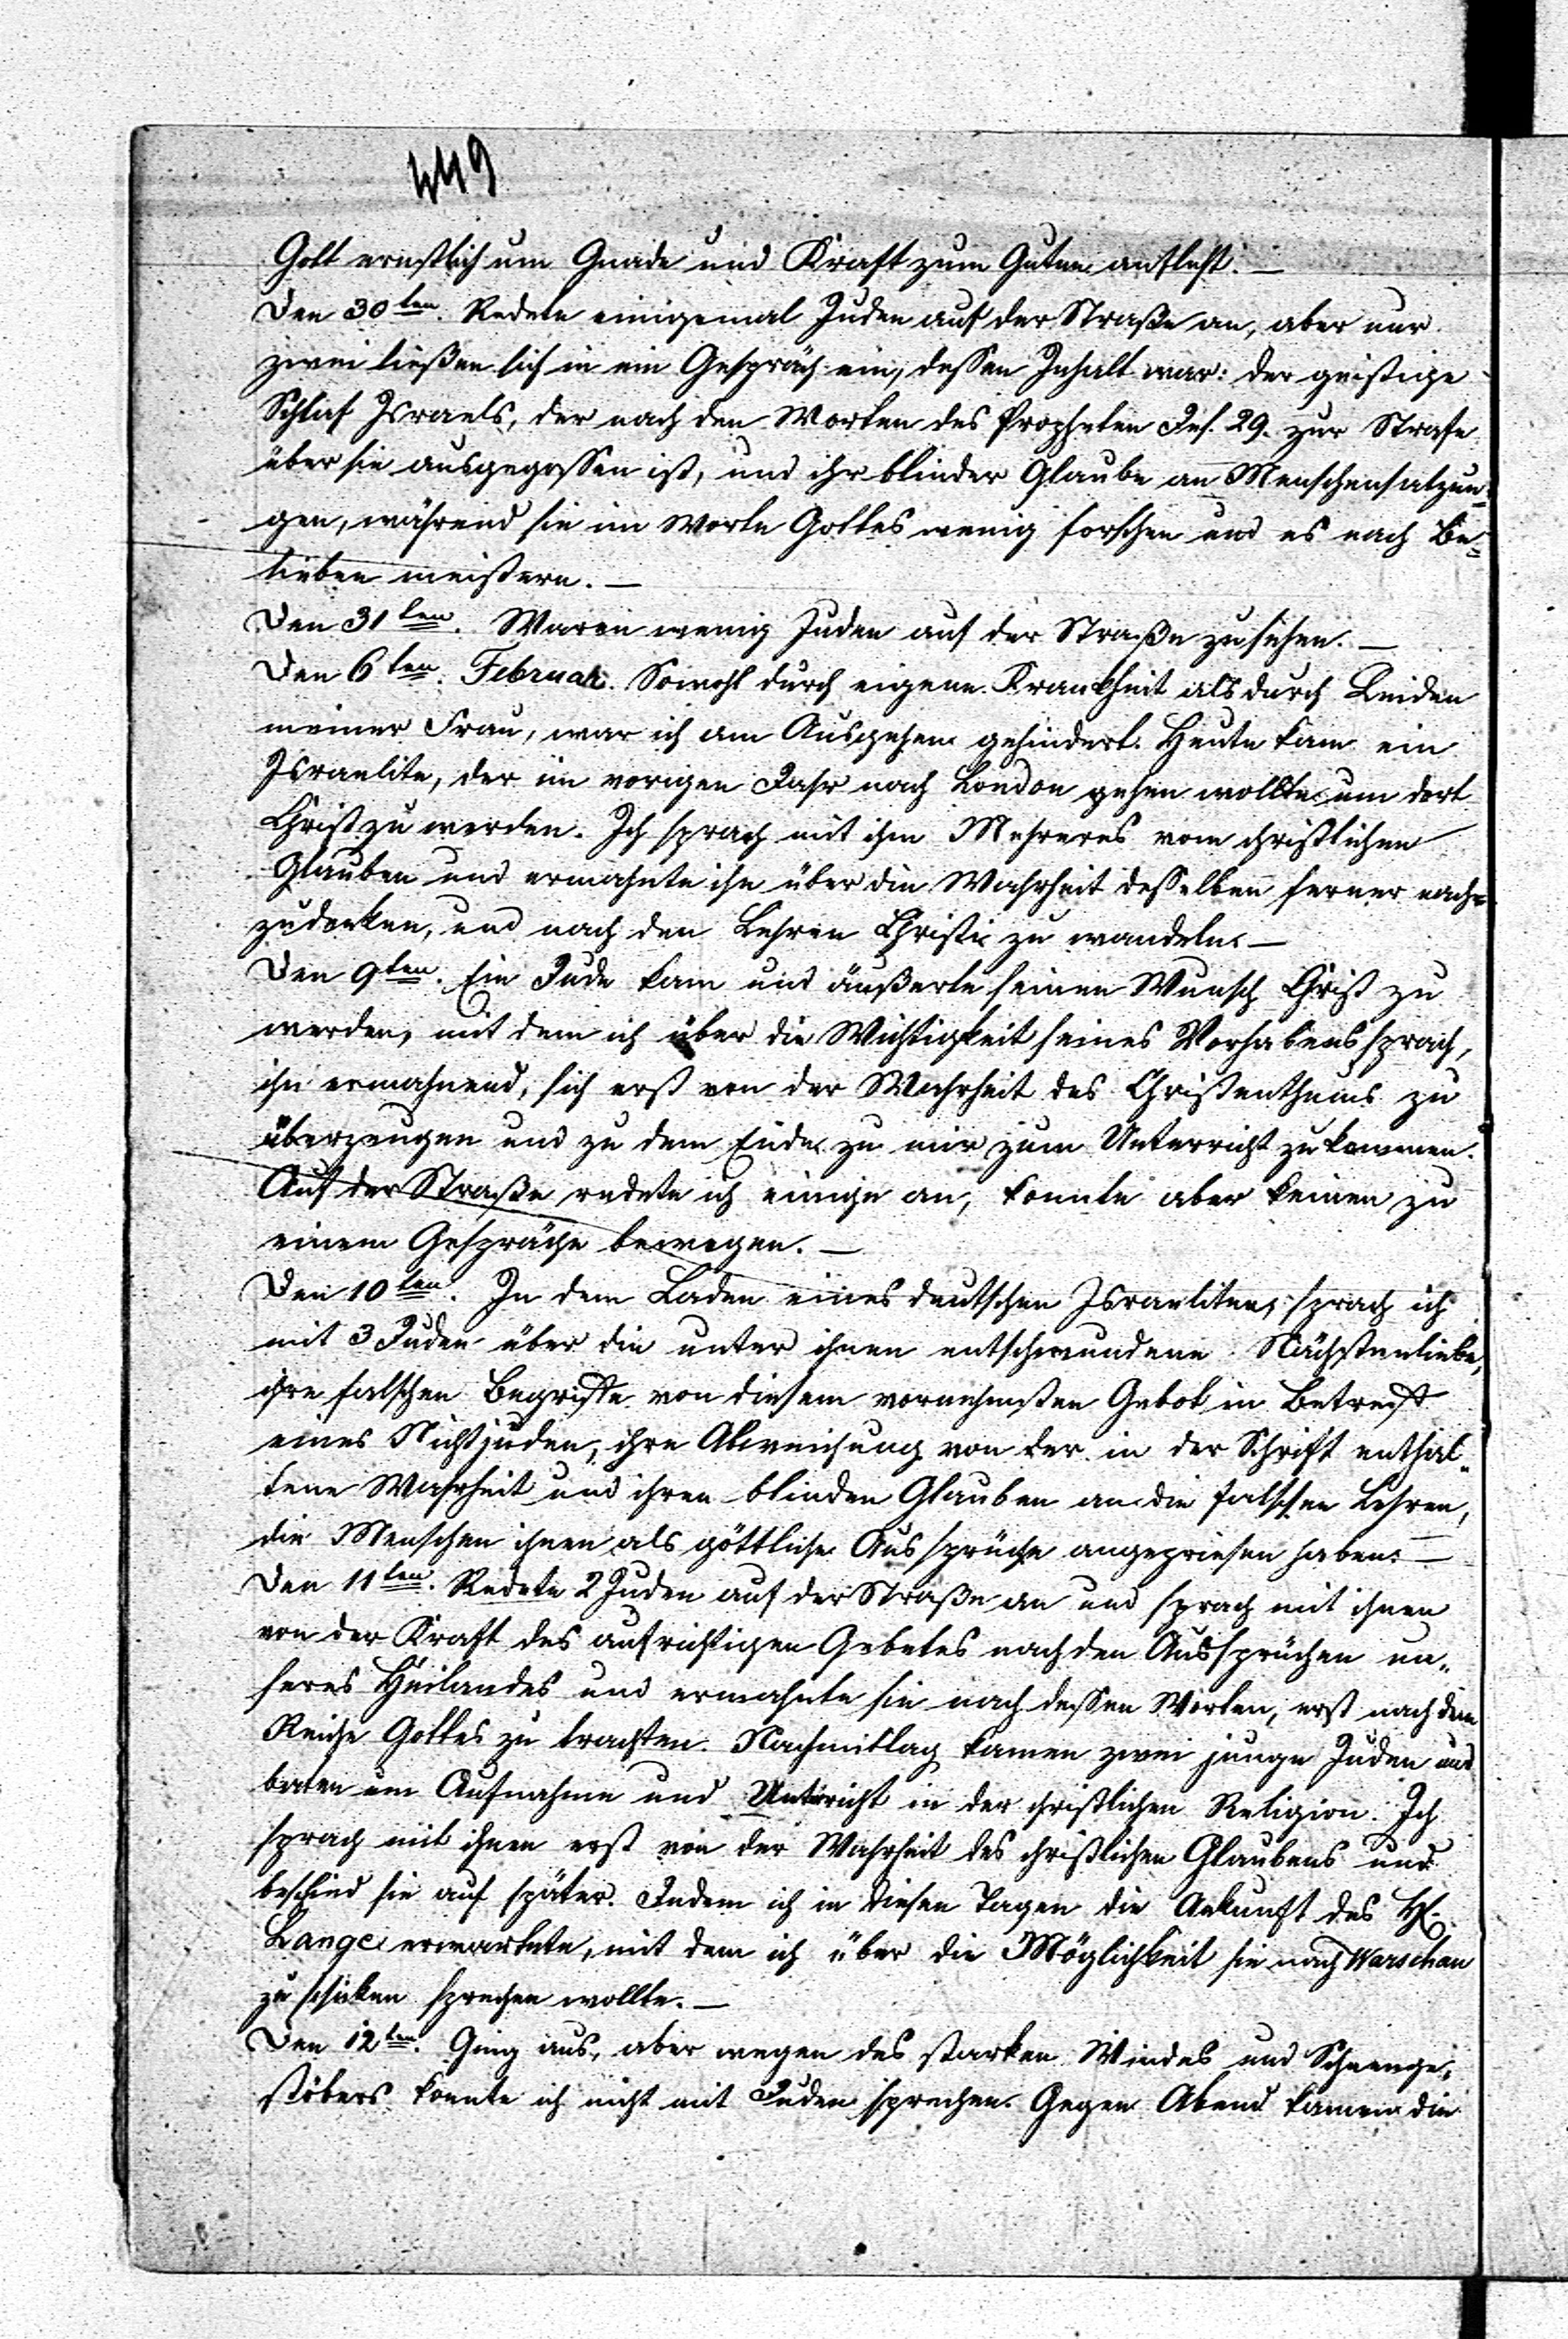 449
Gott ernstlich um Gnade und Kraft zum Guten anfleht. —
Den 30ten. Redete einigemal Juden auf der Straße an, aber nur
zwei ließen sich in ein Gespräch ein, dessen Inhalt war: der geistige
Schlaf Israels, der nach den Worten des Propheten Jes. 29. zur Strafe
über sie ausgegossen ist, und ihr blinder Glaube an Menschensatzun-
gen, während sie im Worte Gottes wenig forschen und es nach Be-
lieben meistern. —
Den 31ten. Waren wenig Juden auf der Straße zu sehen. —
Den 6ten. Februar. Sowohl durch eigene Krankheit als durch Leiden
meiner Frau, war ich am Ausgehen gehindert. Heute kam ein
Israelite, der im vorigen Jahr nach London gehen wollte um dort
Christ zu werden. Ich sprach mit ihm Mehreres vom christlichen
Glauben und ermahnte ihn über die Wahrheit desselben ferner nach-
zudenken, und nach den Lehren Christi zu wandeln. —
Den 9ten. Ein Jude kam und äußerte seinen Wunsch Christ zu
werden, mit dem ich über die Wichtigkeit seines Vorhabens sprach,
ihn ermahnend, sich erst von der Wahrheit des Christenthums zu
überzeugen und zu dem Ende zu mir zum Unterricht zu kommen.
Auf der Straße redete ich einige an, konnte aber keinen zu
einem Gespräche bewegen. —
Den 10ten. In dem Laden eines deutschen Israeliten, sprach ich
mit 3 Juden über die unter ihnen entschwundene Nächstenliebe,
ihre falschen Begriffe von diesem vornehmsten Gebot in Betreff
eines Nichtjuden, ihre Abweichung von der in der Schrift enthal-
tene Wahrheit und ihren blinden Glauben an die falschen Lehren,
die Menschen ihnen als göttliche Aussprüche angepriesen haben. —
Den 11ten. Redete 2 Juden auf der Straße an und sprach mit ihnen
von der Kraft des aufrichtigen Gebetes nach den Aussprüchen un-
seres Heilandes und ermahnte sie nach dessen Worten, erst nach dem
Reiche Gottes zu trachten. Nachmittag kamen zwei junge Juden und
baten um Aufnahme und Unterricht in der christlichen Religion. Ich
sprach mit ihnen erst von der Wahrheit des christlichen Glaubens und
beschied sie auf später. Indem ich in diesen Tagen die Ankunft des H.
Lange erwartete, mit dem ich über die Möglichkeit sie nach Warschau
zu schicken sprechen wollte. —
Den 12ten. Ging aus, aber wegen des starken Windes und Schneege-
stöbers konnte ich nicht mit Juden sprechen. Gegen Abend kamen die